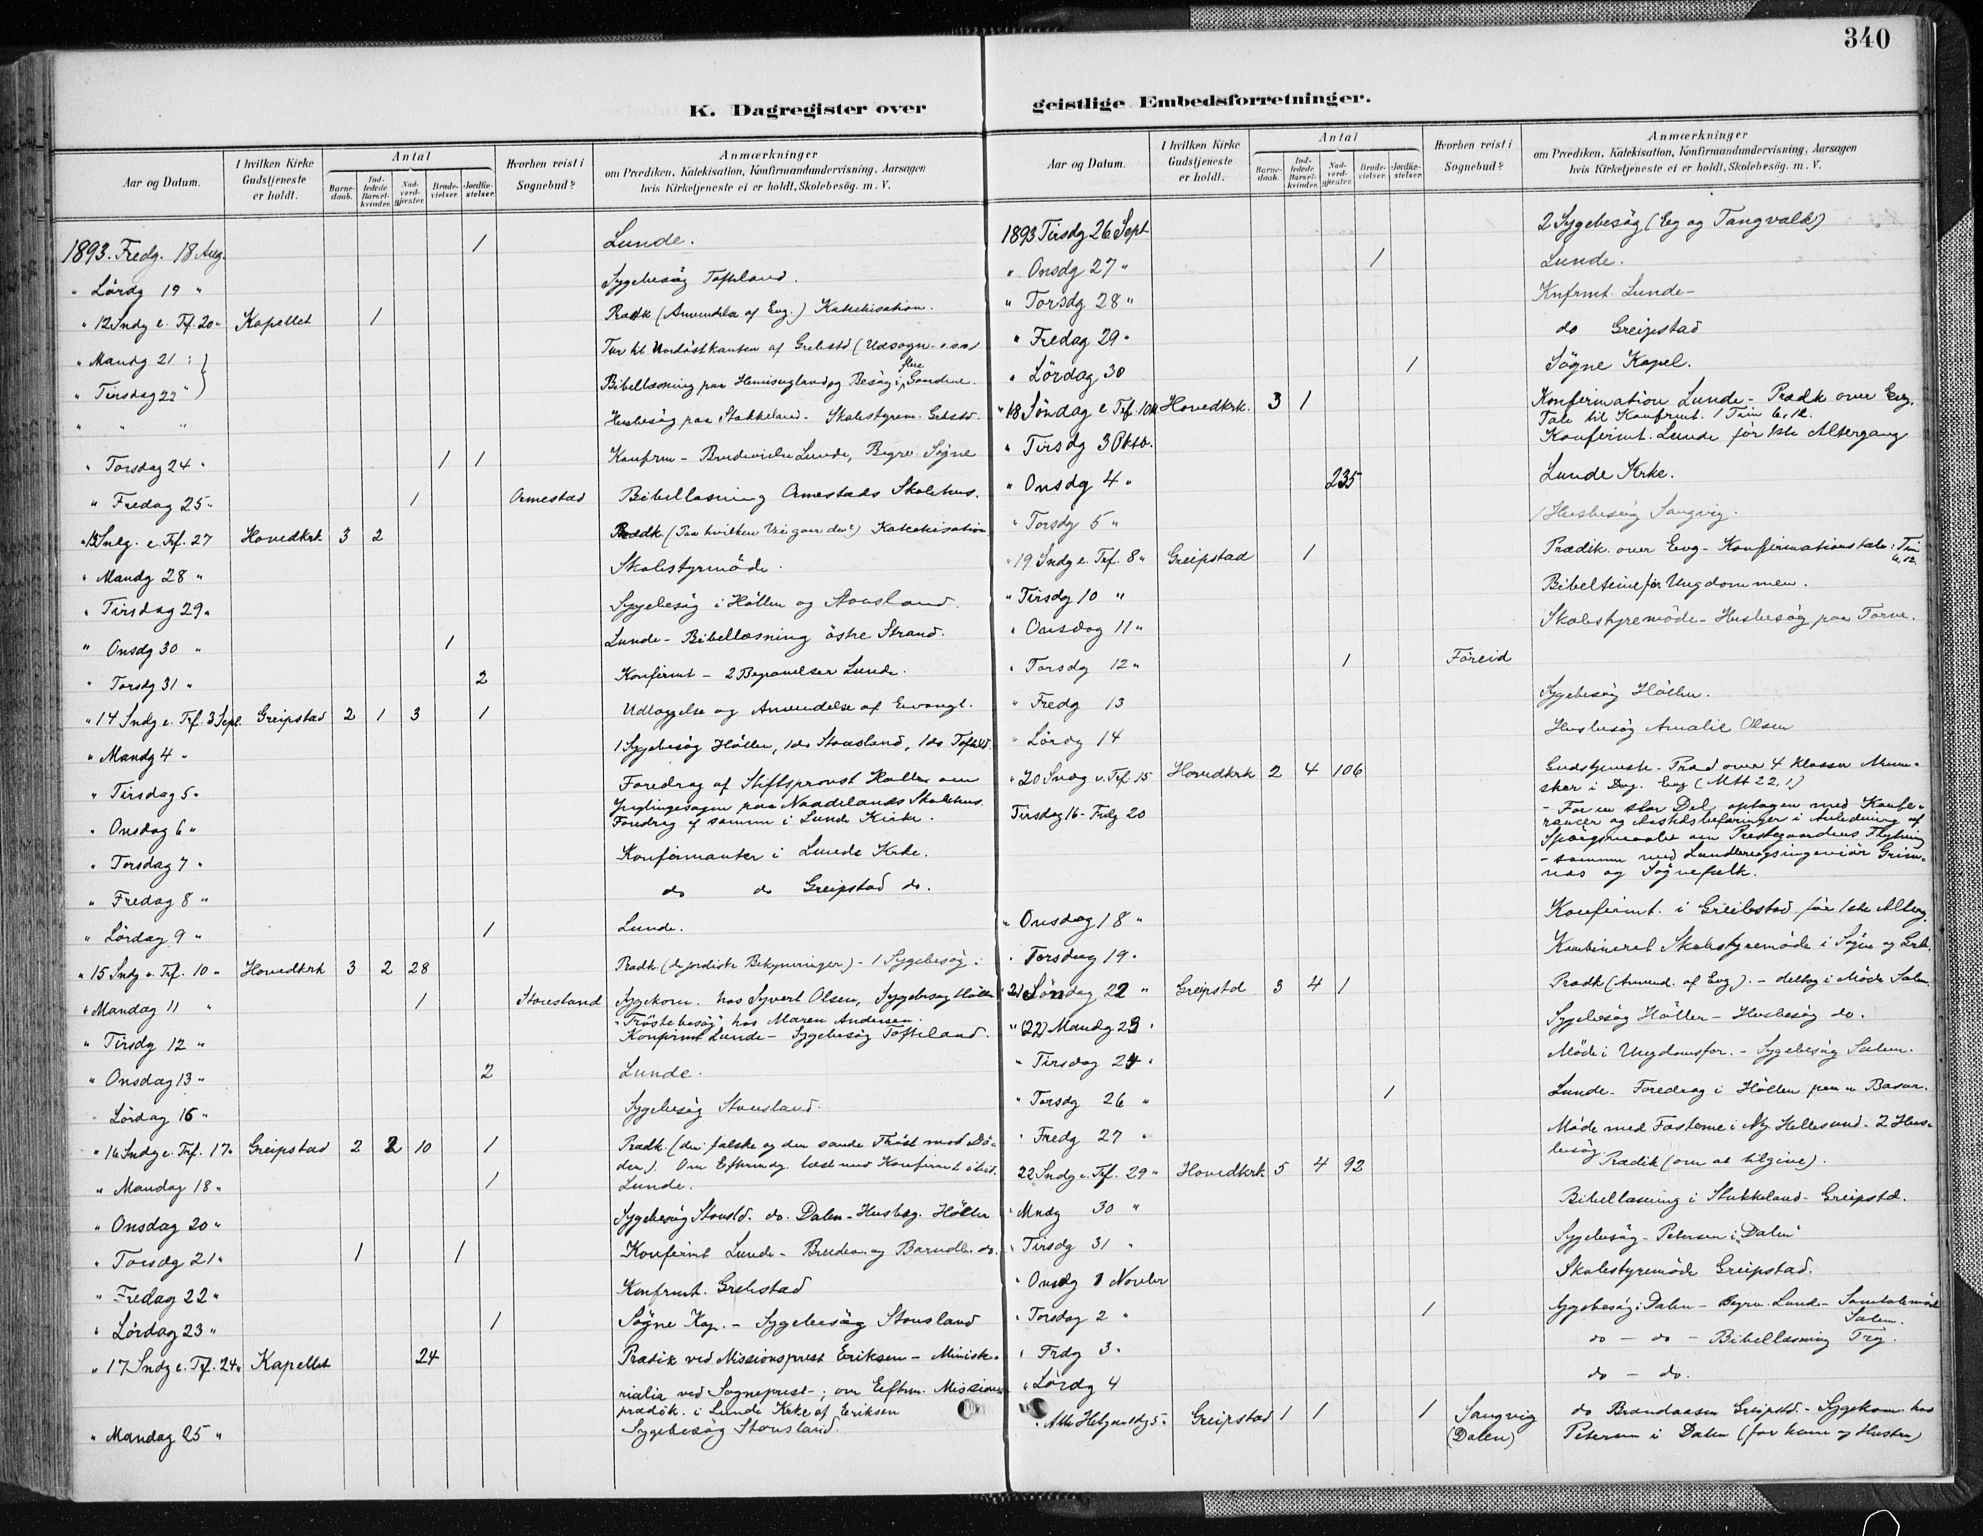 340
K. Dagregister over
Aar og Datum.
I hvilken Kirke Gudstjeneste er holdt.
Antal
Barne-daab.
Ind-ledede Barsel-kvinder.
Nad-verd-gjester.
Brude-vielser.
Jordfæ-stelser.
Hvorhen reist i Sognebud?
Anmærkninger
om Prædiken, Katekisation, Konfirmandundervisning, Aarsagen
hvis Kirketjeneste ei er holdt, Skolebesøg. m. V.
1893. Fredg. 18 Aug. 1 Lunde.
" Lördg 19 " Sygebesög Toftland.
" 12 Sndg e. Trf. 20 " Kapellet 1 Prædk (Anvendelse af Evg.) Katekisation.
" Mandg 21 : Tur til Nordöstkanten af Grebstd (Udsogn
" Tirsdag 22 " Bibellæsning paa og Besög i flere Gaardene.
" " " Husbesög paa Stokkeland. Skolestyrem. Grbstd.
" Torsdag 24 " 1 1 Konfrm - Brudevielse Lunde, Begrv. Søgne
" Fredag 25 " 1 Ormestad Bibellæsning Ormestads Skolehus.
" 13 Sndg. e. Trf. 27 Hovedkrk 3 2 Prædk. (Paa hvilken Vei gaar du?) Katekisation
" Mandg 28 " Skolestyrmöde.
" Tirsdag 29 " Sygebesög i Höllen og Stousland.
" Onsdg 30 " 1 Lunde - Bibellæsning östre Strand.
" Torsdg 31 " 2 Konfirmt - 2 Begravelser Lunde.
" 14 Sndg e. Trf. 3 Sept. Greipstad 2 1 3 1 Udlæggelse og Anvendelse af Evangl.
" Mandg 4 " 1 Sygebesög Höllen, 1 do Stousland, 1 do Toftld.
" Tirsdag 5 " Foredrag af Stiftsprovst om
Ynglingesagen paa Naadelands Skolehus.
" Onsdag 6 " Foredrag af samme i Lunde Kirke.
" Torsdag 7 " Konfirmanter i Lunde Krke.
" Fredag 8 " do do Greipstad do.
" Lördag 9 " 1 Lunde.
" 15 Sndg e. Trf. 10 " Hovedkrk 3 2 28 Prædk (de jordiske Bekymringer) - 1 Sygebesög.
" Mandag 11 " 1 Stousland Sygekom. hos Syvert Olsen, Sygebesög Höllen
"Tröstebesög" hos Maren Andersen.
" Tirsdg 12 " Konfirmt Lunde - Sygebesög Tofteland.
" Onsdag 13 " 2 Lunde.
Lördag 16 " Sygebesög Stousland.
" 16 Sndg e. Trf. 17 " Greipstad 2 2 10 1 Prædk. (den falske og den sande Tröst mod Dö-
den). Om Eftermdg. læst med Konfirmt ibid.
" Mandag 18 " 1 Lunde.
" Onsdag 20 " Sygebesög Stousld. do. Dalen - Husbsg. Höllen
" Torsdg 21 " 1 1 Konfirmt Lunde - Brudev. og Barnedb. do.
" Fredag 22 " Konfrmt. Grebstad
" Lördag 23 " 1 Sögne Kap. - Sygebesög Stousland
" 17 Sndg e. Trf. 24 " Kapellet 24 Prædik ved Missionsprest Eriksen - Ministe-
rialia ved Sogneprest -; om Eftm. Missions
prædik. i Lunde Krke af Eriksen
" Mandag 25 " Sygebesög Stousland.
geistlige Embedsforretninger.
Aar og Datum.
I hvilken Kirke Gudstjeneste er holdt.
Antal
Barne-daab.
Ind-ledede Barsel-kvinder.
Nad-verd-gjester.
Brude-vielser.
Jordfæ-stelser.
Hvorhen reist i Sognebud?
Anmærkninger
om Prædiken, Katekisation, Konfirmandundervisning, Aarsagen
hvis Kirketjeneste ei er holdt, Skolebesøg. m. V.
1893 Tirsdg 26 Sept 2 Sygebesög (Eg og Tangvald)
" Onsdg 27 " 1 Lunde.
" Torsdg 28 " Knfrmt. Lunde -
" Fredag 29 " do Greipstad
" Lördag 30 1 Sögne Kapel.
" 18 Söndag e. Trf. 1 Okt Hovedkrk. 3 1 Konfirmation Lunde - Prædk over Evg.
Tale til Konfrmt. 1 Tim 6, 12.
" Tirsdg 3 Oktb. Konfirmt. Lunde för 1ste Altergang
" Onsdg 4 " 235 Lunde Krke.
" Torsdg 5 " 1 Husbesög Langvig.
" 19 Sndg e. Trf. 8 " Greipstad 1 Prædik. over Evg - Konfirmationstale: 1 Tim 6, 12.
" Tirsdg 10 " Bibeltime for Ungdommen.
" Onsdag 11 " Skolestyremöde - Husbesög paa Torve.
" Torsdg 12 " 1 Föreid
" Fredg 13 Sygebesög Höllen.
" Lördg 14 Husbesög Amalie Olsen
" 20 Sndg e. Trf. 15 Hovedkrk 2 4 106 Gudstjeneste. Præd over 4 Klasser Menne-
sker i Dag. Evg (Mtt 22, 1)
Tirsdag 16 - Frdg 20 - For en stor Del optagen med Konfe-
rancer og Aastedsbefaringer i Anledning af
Spörgsmaalet om Prestegaardens Flytning
- sammen med Landbrugsingeniör Grim-
nes og Sögnefolk.
" Onsdag 18 " Konfirmt. i Greibstad för 1ste Alterg.
" Torsdag 19. Kombineret Skolestyremöde i Sögne og Greb.
" 21 Söndag 22 " Greipstd 3 4 1 Prædk (Anvend. af Evg). - deltog i Möde Salem.
" (22) Mandg 23 " Sygebesög Höllen - Husbesög do.
" Tirsdag 24 " Möde i Ungdomsfor. - Sygebesög Salem.
" Torsdg 26 " 1 Lunde - Foredrag i Höllen paa en Basar.
" Fredg 27 " Möde med Fosterne i Ny Hellesund - 2 Hus-
besög
22 Sndg e. Trf. 29 " Hovedkrk 5 4 92 Prædik (om at tilgive).
" Mndg 30 " Bibellæsning i Stokkeland - Greipstd.
" Tirsdg 31 " Sygebesög - Petersen i "Dalen"
" Onsdg 1 Novbr Skolestyremöde Greipstad.
" Torsdag 2 " 1 Sygebesög i Dalen - Begrv. Lunde - Samtalemöde Salem.
" Frdg 3 " do - do - Bibellæsning Try.
" Lördg 4 do - do.
" Alle Helgensdg 5 " Greipstad 1 1 1 Langvig (Dalen) do Brandaasen Greipstd - Sygekom. hos
Petersen i Dalen (for ham og Hustru)